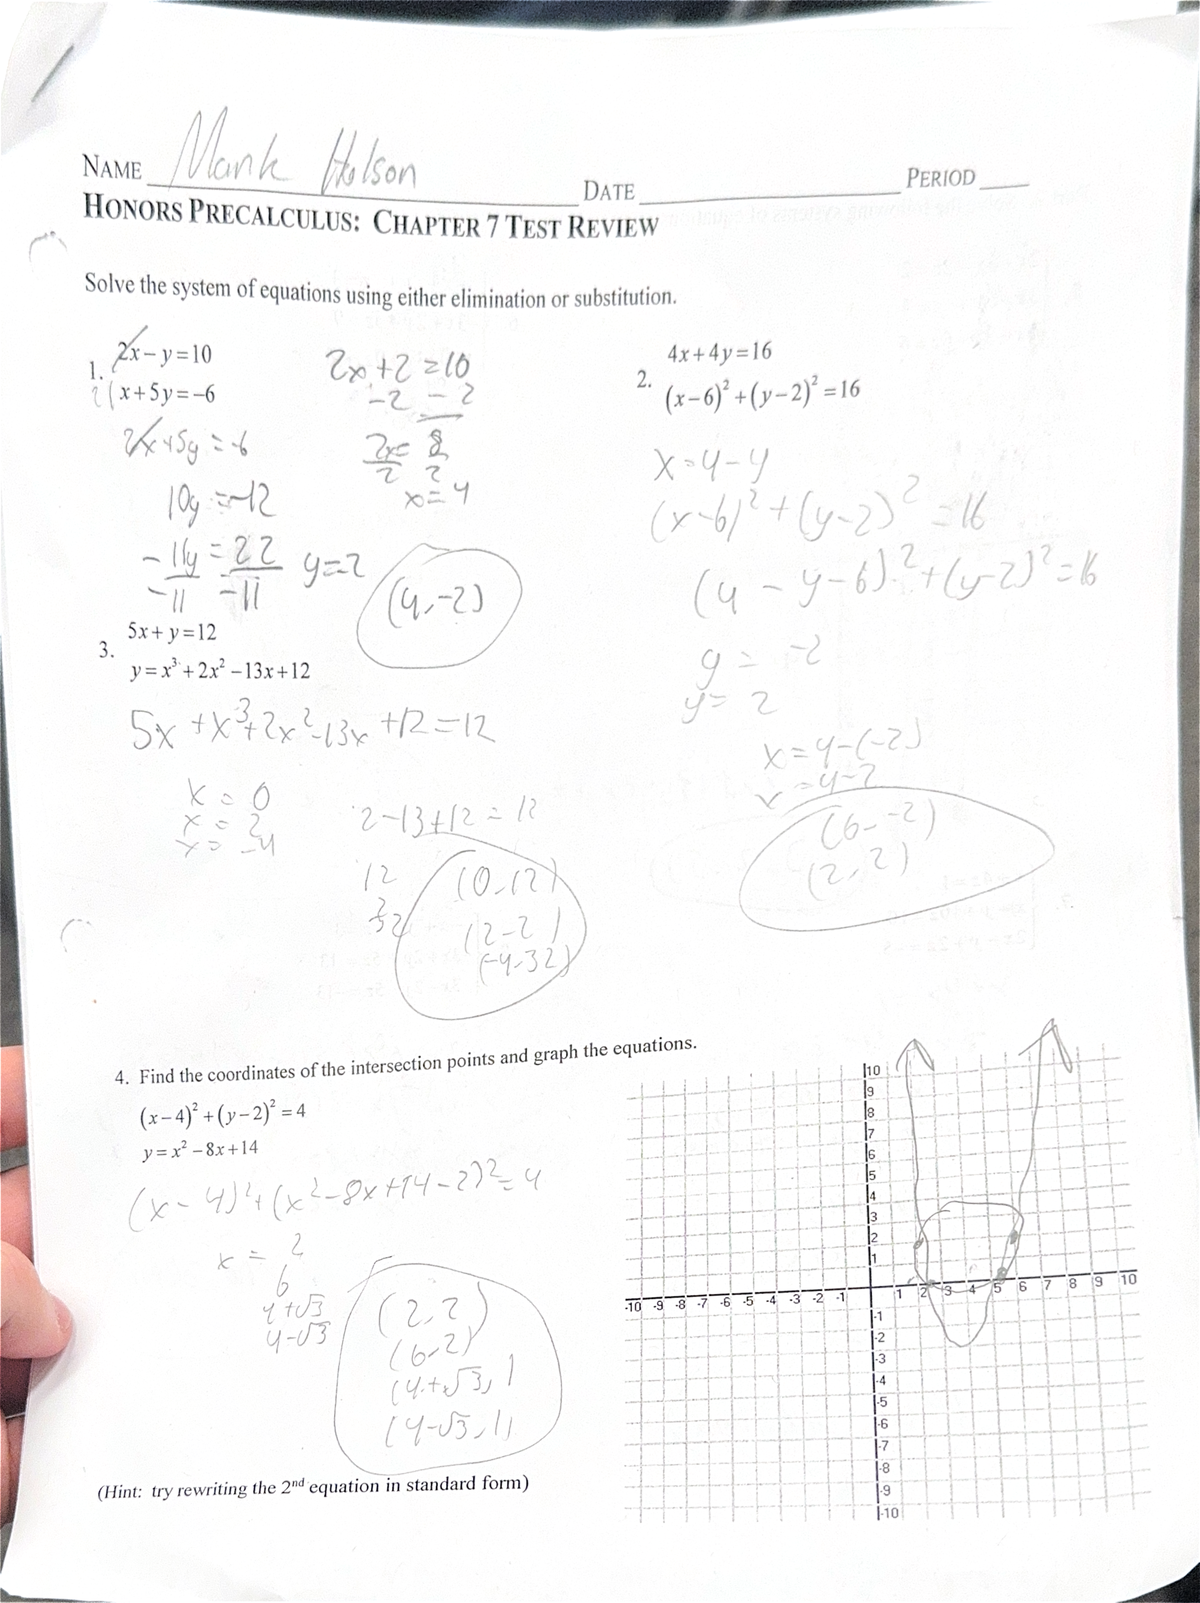 NAME Mank Holson DATE PERIOD
HONORS PRECALCULUS: CHAPTER 7 TEST REVIEW
Solve the system of equations using either elimination or substitution.
1. 2x-y=10
2( x+5y=-6
2x+5y=-6
10y=-12
-11y=22
-11 -11
y=-2
2x+2=10
-2 -2
2x= 8
2 2
x=4
(4,-2)
2. 4x+4y=16
(x-6)²+(y-2)²=16
x=4-y
(x-6)²+(y-2)²=16
(4-y-6)²+(y-2)²=16
y = -2
y= 2
x=4-(-2)
x=4-2
(6,-2)
(2,2)
3. 5x+y=12
y=x³+2x²-13x+12
5x+x³+2x²-13x+12=12
x=0
x=2
x=-4
2-13+12=12
12
2
32
(0,12)
(2-2)
(-4,32)
4. Find the coordinates of the intersection points and graph the equations.
(x-4)²+(y-2)²=4
y=x²-8x+14
(x-4)²+(x²-8x+14-2)²=4
x = 2
6
4+√3
4-√3
(2,2)
(6,2)
(4+√3,1
(4-√3,1)
(Hint: try rewriting the 2nd equation in standard form)
10
9
8
7
6
5
4
3
2
1
-10 -9 -8 -7 -6 -5 -4 -3 -2 -1 1 2 3 4 5 6 7 8 9 10
-1
-2
-3
-4
-5
-6
-7
-8
-9
-10